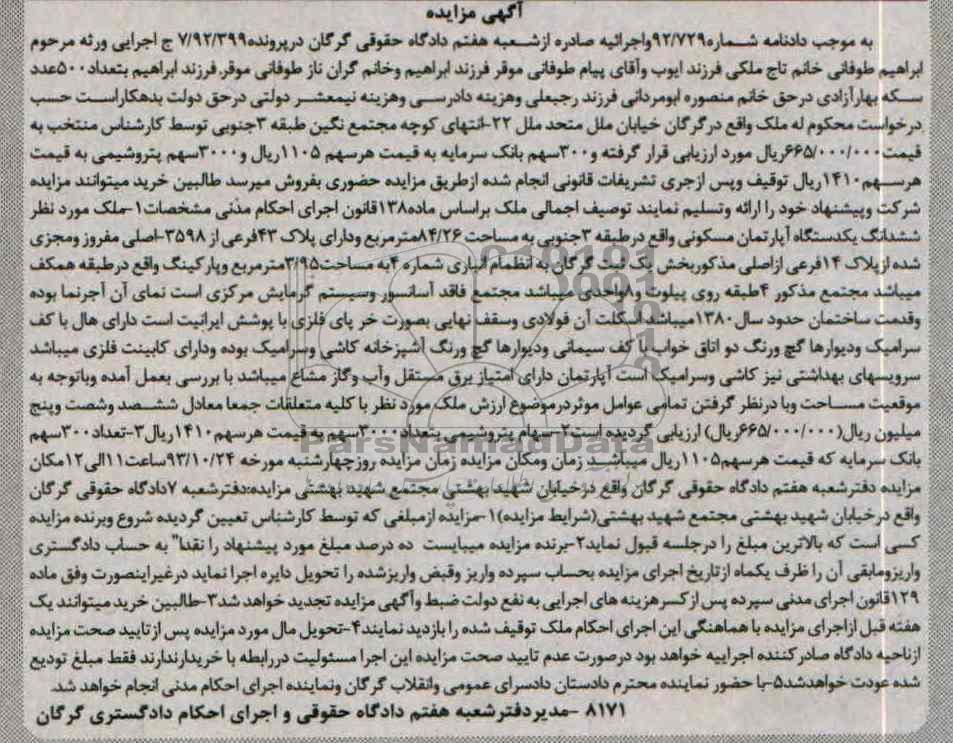 آگهی مزایده
به موجب دادنامه شماره۹۲/۷۲۹واجرائیه صادره ازشعبه هفتم دادگاه حقوقی گرگان درپرونده۷/۹۲/۳۹۹ ج اجرایی ورثه مرحوم
ابراهیم طوفانی خانم تاج ملکی فرزند ایوب وآقای پیام طوفانی موقر فرزند ابراهیم وخانم گران ناز طوفانی موقر.فرزند ابراهیم بتعداد۵۰۰عدد
سکه بهارآزادی درحق خانم منصوره ابومردانی فرزند رجبعلی وهزینه دادرسی وهزینه نیمعشر دولتی درحق دولت بدهکاراست حسب
درخواست محکوم له ملک واقع درگرگان خیابان ملل متحد ملل ۲۲-انتهای کوچه مجتمع نگین طبقه ۳جنوبی توسط کارشناس منتخب به
قیمت۶۶۵/۰۰۰/۰۰۰ریال مورد ارزیابی قرار گرفته و۳۰۰سهم بانک سرمایه به قیمت هرسهم ۱۱۰۵ریال و۳۰۰۰سهم پتروشیمی به قیمت
هرسهم۱۴۱۰ریال توقیف وپس ازجری تشریفات قانونی انجام شده ازطریق مزایده حضوری بفروش میرسد طالبین خرید میتوانند مزایده
شرکت وپیشنهاد خود را ارائه وتسلیم نمایند توصیف اجمالی ملک براساس ماده۱۳۸قانون اجرای احکام مدنی مشخصات۱-ملک مورد نظر
ششدانگ یکدستگاه آپارتمان مسکونی واقع درطبقه ۳جنوبی به مساحت ۸۴/۲۶مترمربع ودارای پلاک ۴۳فرعی از ۳۵۹۸-اصلی مفروز ومجزی
شده ازپلاک ۱۴فرعی ازاصلی مذکوربخش یک ثبت گرگان به انظمام انباری شماره ۴به مساحت۳/۹۵مترمربع وپارکینگ واقع درطبقه همکف
میباشد مجتمع مذکور ۴طبقه روی پیلوت و۸واحدی میباشد مجتمع فاقد آسانسور وسیستم گرمایش مرکزی است نمای آن آجرنما بوده
وقدمت ساختمان حدود سال۱۳۸۰میباشداسکلت آن فولادی وسقف نهایی بصورت خر پای فلزی با پوشش ایرانیت است دارای هال با کف
سرامیک ودیوارها گچ ورنگ دو اتاق خواب با کف سیمانی ودیوارها گچ ورنگ آشپزخانه کاشی وسرامیک بوده ودارای کابینت فلزی میباشد
سرویسهای بهداشتی نیز کاشی وسرامیک است آپارتمان دارای امتیاز برق مستقل وآب وگاز مشاع میباشد با بررسی بعمل آمده وباتوجه به
موقعیت مساحت وبا درنظر گرفتن تمامی عوامل موثر درموضوع ارزش ملک مورد نظر با کلیه متعلقات جمعا معادل ششصد وشصت وپنج
میلیون ریال(۶۶۵/۰۰۰/۰۰۰ریال) ارزیابی گردیده است۲-سهام پتروشیمی بتعداد۳۰۰۰سهم به قیمت هرسهم۱۴۱۰ریال۳-تعداد۳۰۰سهم
بانک سرمایه که قیمت هرسهم۱۱۰۵ریال میباشد زمان ومکان مزایده زمان مزایده روزچهارشنبه مورخه ۹۳/۱۰/۲۴ساعت۱۱الی۱۲مکان
مزایده دفترشعبه هفتم دادگاه حقوقی گرگان واقع درخیابان شهید بهشتی مجتمع شهید بهشتی مزایده:دفترشعبه ۷دادگاه حقوقی گرگان
واقع درخیابان شهید بهشتی مجتمع شهید بهشتی(شرایط مزایده)۱-مزایده ازمبلغی که توسط کارشناس تعیین گردیده شروع وبرنده مزایده
کسی است که بالاترین مبلغ را درجلسه قبول نماید۲-برنده مزایده میبایست ده درصد مبلغ مورد پیشنهاد را نقدا" به حساب دادگستری
واریزومابقی آن را ظرف یکماه ازتاریخ اجرای مزایده بحساب سپرده واریز وقبض واریزشده را تحویل دایره اجرا نماید درغیراینصورت وفق ماده
۱۲۹قانون اجرای مدنی سپرده پس ازکسرهزینه های اجرایی به نفع دولت ضبط وآگهی مزایده تجدید خواهد شد۳-طالبین خرید میتوانند یک
هفته قبل ازاجرای مزایده با هماهنگی این اجرای احکام ملک توقیف شده را بازدید نمایند۴-تحویل مال مورد مزایده پس ازتایید صحت مزایده
ازناحیه دادگاه صادرکننده اجراییه خواهد بود درصورت عدم تایید صحت مزایده این اجرا مسئولیت دررابطه با خریدارندارند فقط مبلغ تودیع
شده عودت خواهدشد۵-با حضور نماینده محترم دادستان دادسرای عمومی وانقلاب گرگان ونماینده اجرای احکام مدنی انجام خواهد شد.
۸۱۷۱ -مدیردفترشعبه هفتم دادگاه حقوقی و اجرای احکام دادگستری گرگان
ParsNamadData